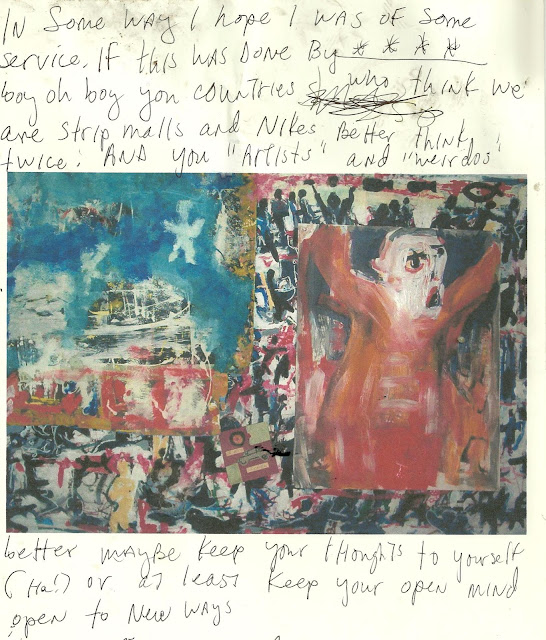 IN Some WAY I hope I WAS OF Some
service. IF this WAS DONE By * * * *
boy oh boy you countries who think we
are strip malls and Nikes Better think
twice. AND you "Artists" and "weirdos"
better MAYBE Keep your tHoughTs to yourself
(Ha!) or at least Keep your open MIND
open to New WAYS